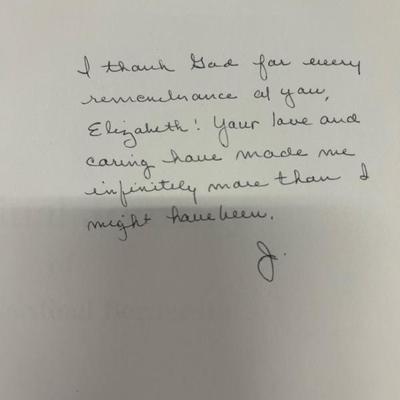 I thank God for every
remembrance of you,
Elizabeth! Your love and
caring have made me
infinitely more than I
might have been.
J.